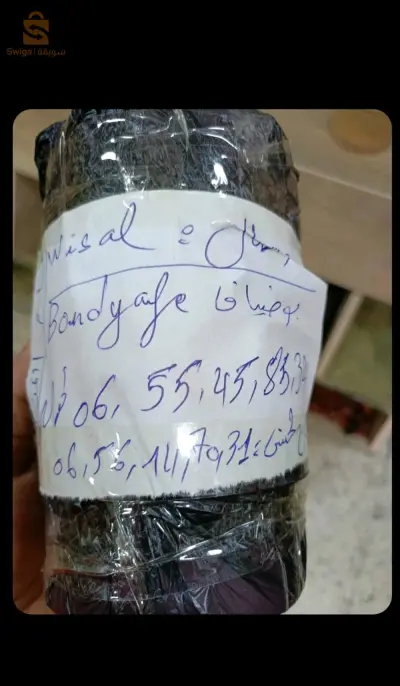 Swiga | سويقة
Wisal : وصال
Bondyafe بوضيافا
06, 55, 45, 85, 3
06, 56, 14, 70, 31 :